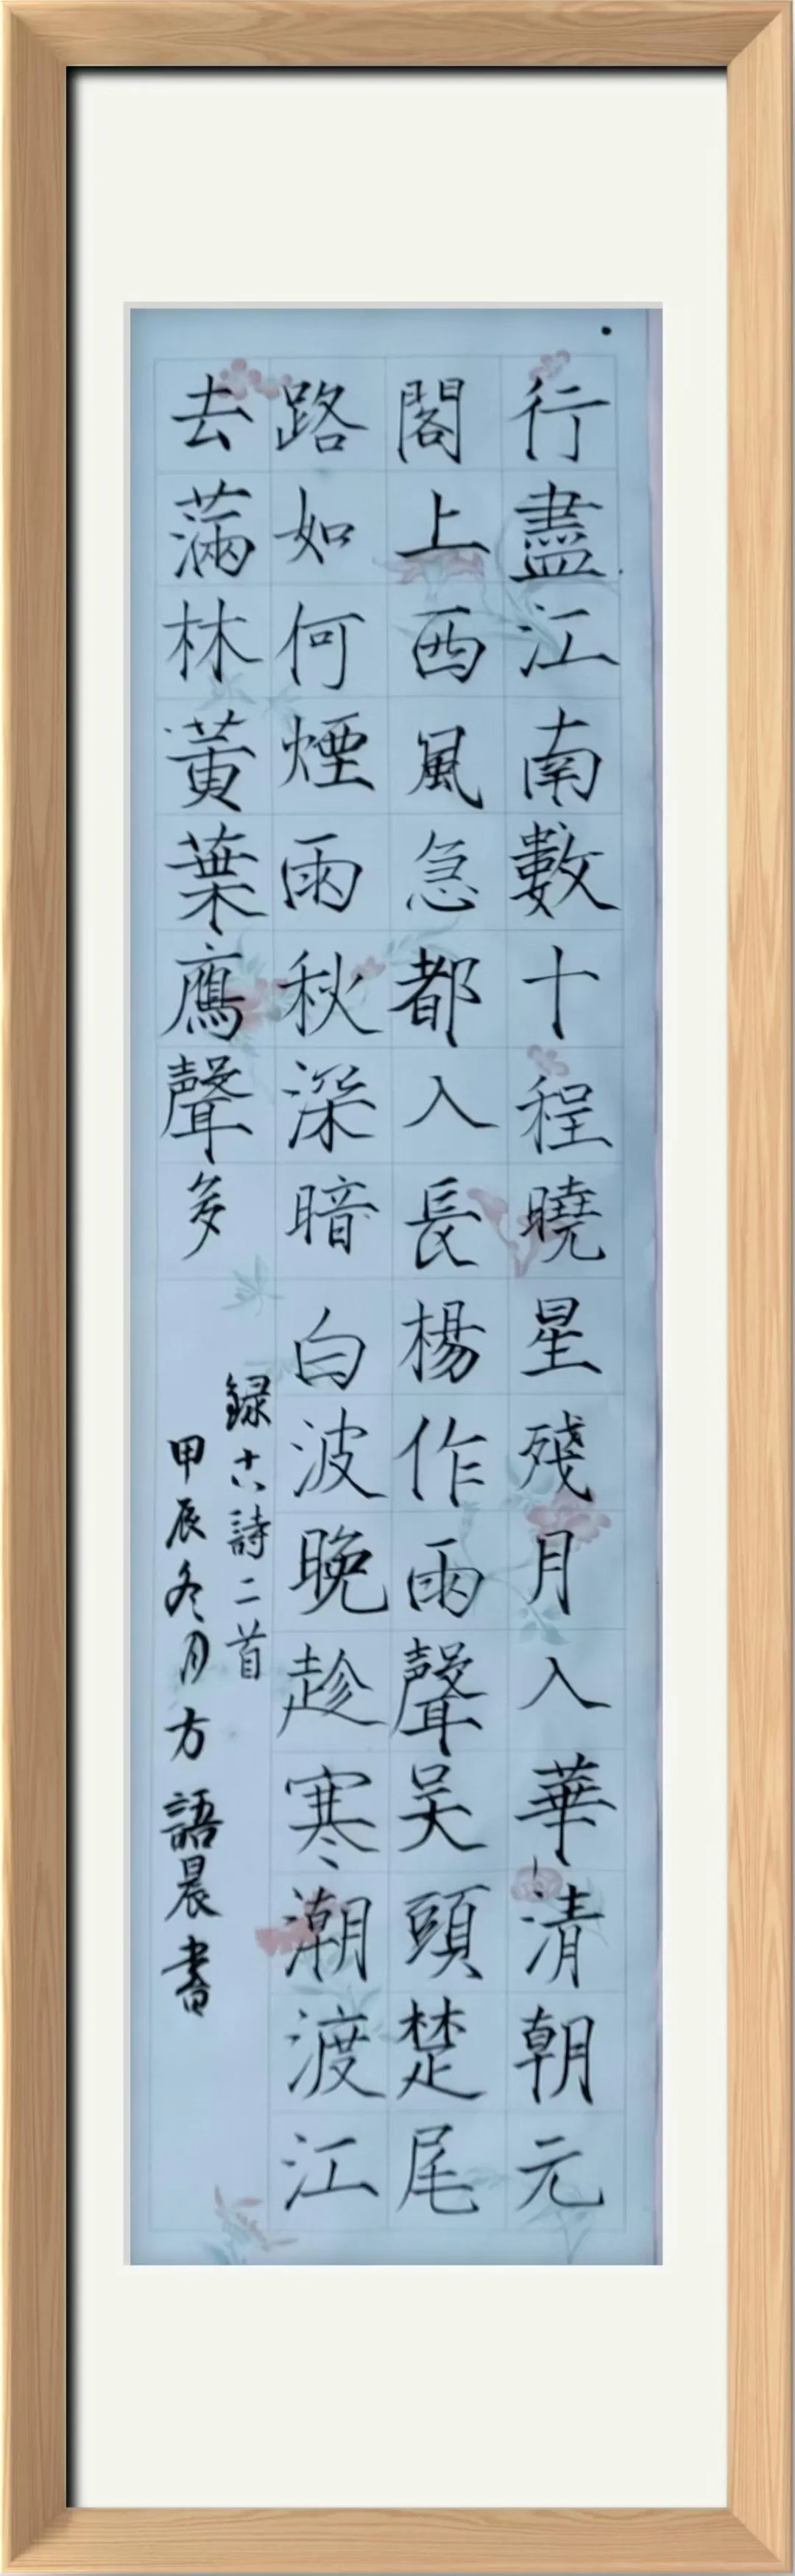 行盡江南數十程曉星殘月入華清朝元
閣上西風急都入長楊作雨聲吳頭楚尾
路如何煙雨秋深暗白波晚趁寒潮渡江
去滿林黃葉鷹聲多
録古詩二首
甲辰冬月方語晨書